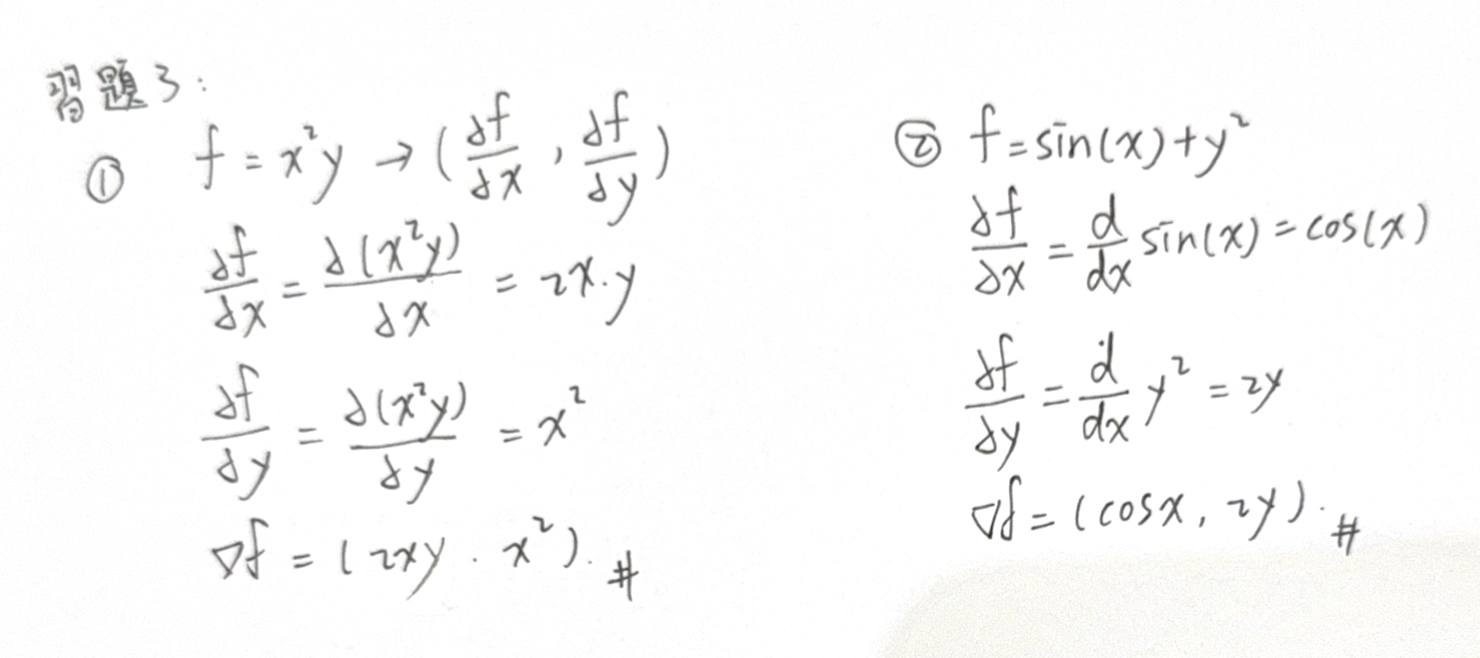 習題3:
① f = x²y → (∂f/∂x , ∂f/∂y)
∂f/∂x = ∂(x²y)/∂x = 2x·y
∂f/∂y = ∂(x²y)/∂y = x²
∇f = (2xy . x²). #
② f = sin(x) + y²
∂f/∂x = d/dx sin(x) = cos(x)
∂f/∂y = d/dx y² = 2y
∇f = (cosx, 2y). #